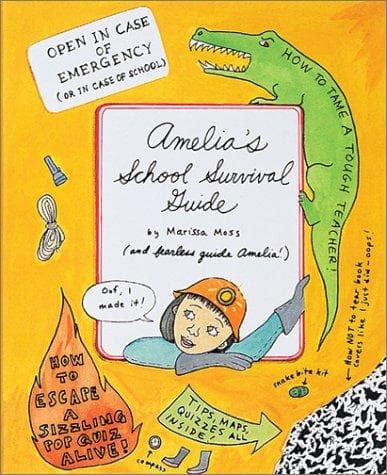 OPEN IN CASE
OF
EMERGENCY
(OR IN CASE OF SCHOOL)
HOW TO TAME A TOUGH TEACHER!
Amelia's
School Survival
Guide
by Marissa Moss
(and fearless guide Amelia!)
Oof, I
made it!
HOW NOT to tear book
covers like I just did-oops!
snake bite kit
HOW
TO
ESCAPE
A
SIZZLING
POP QUIZ
ALIVE!
TIPS, MAPS,
QUIZZES ALL
INSIDE
compass